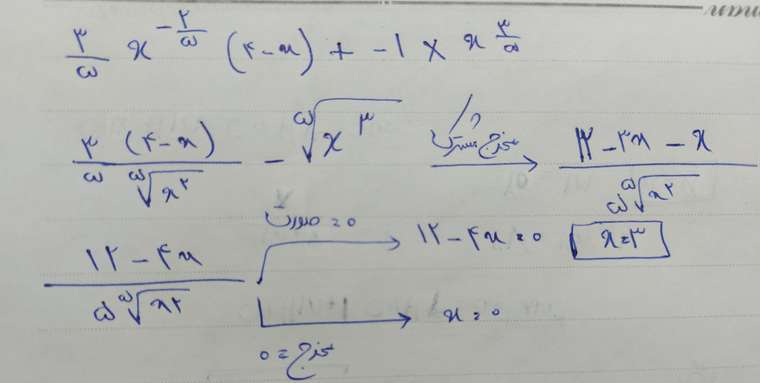 ۳/۵ x^(-۲/۵) (۴-x) + -۱ × x^(۳/۵)
۳(۴-x) / ۵ ⁵√x^۲ - ⁵√x^۳ مخرج مشترک → ۱۲-۳x-x / ۵ ⁵√x^۲
۱۲-۴x / ۵ ⁵√x^۲
صورت = ۰ → ۱۲-۴x=۰ x=۳
مخرج = ۰ → x=۰